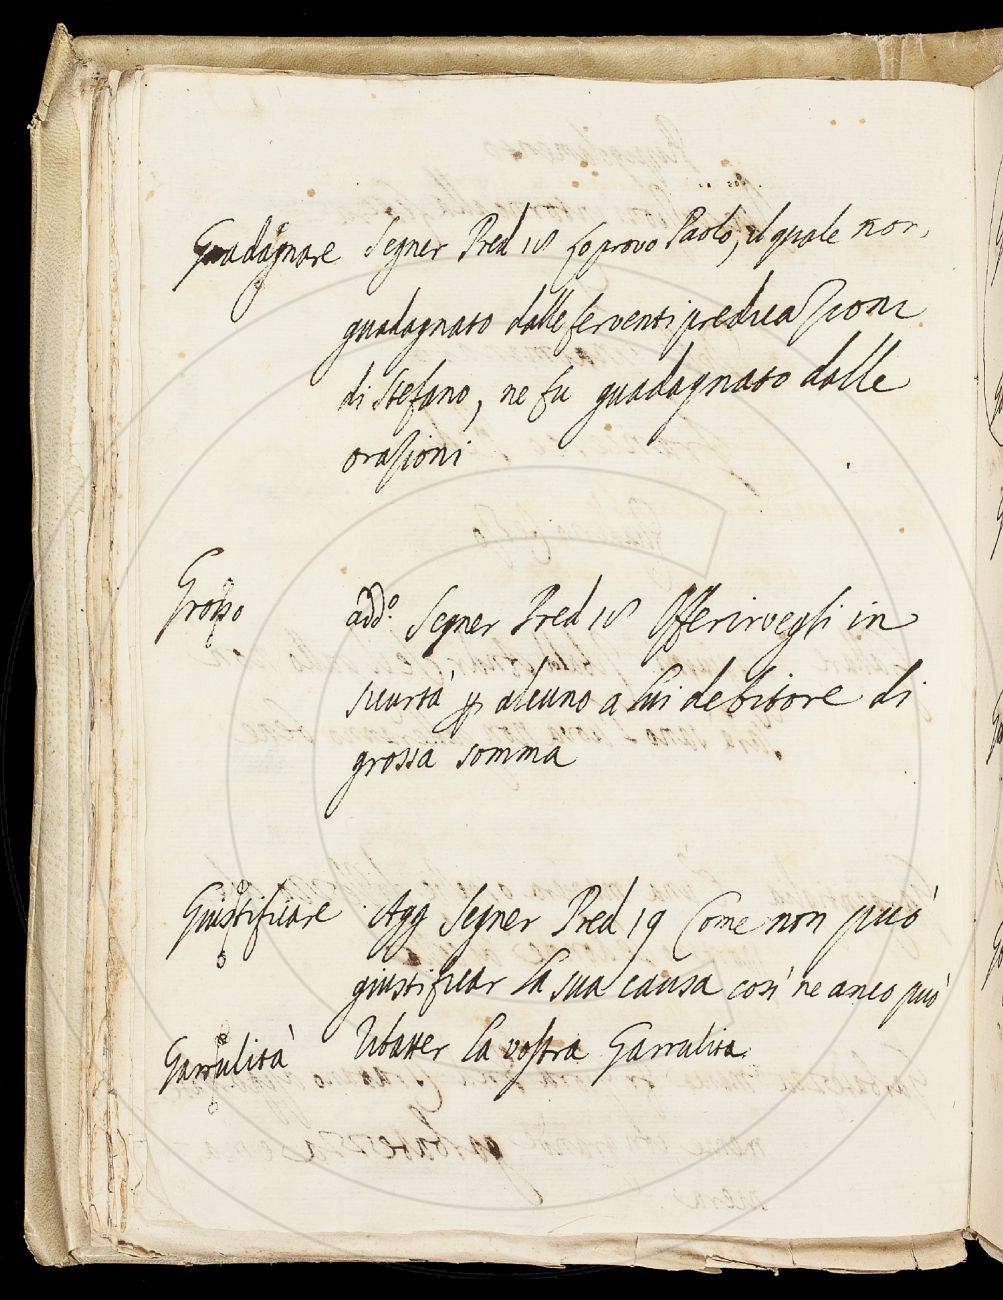 Guadagnare Segner Pred 18 Lo provò Paolo, il quale non
guadagnato dalle ferventi predicazioni
di Stefano, ne fu guadagnato dalle
orazioni
Grosso add.º Segner Pred 18 Offerirvegli in
sicurtà p alcuno a lui debitore di
grossa somma
Giustificare Agg Segner Pred 19 Come non può
giustificar la sua causa così ne anco può
Garrulità ribatter la vostra Garrulità